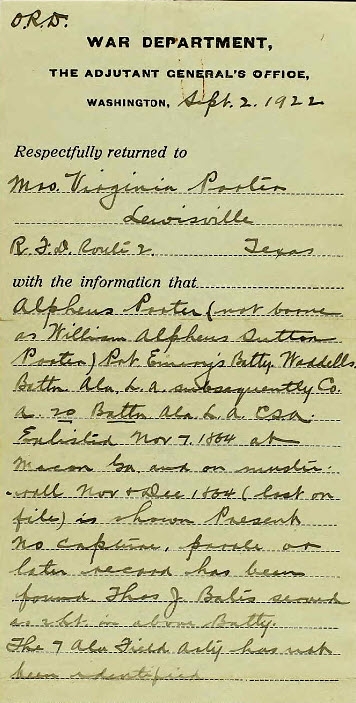 O.R.D.
WAR DEPARTMENT,
THE ADJUTANT GENERAL'S OFFICE,
WASHINGTON, Sept. 2. 1922
Respectfully returned to
Mrs. Virginia Porter
Lewisville
R. F. D. Route 2 Texas
with the information that
Alpheus Porter (not borne
as William Alpheus Sutton
Porter) Pvt. Emery's Batty. Waddell's
Battn Ala. L. A. subsequently Co.
A. 20 Battn Ala. L. A. CSA.
Enlisted Nov 7, 1864 at
Macon Ga. and on muster-
roll Nov & Dec 1864 (last on
file) is shown Present
No capture, parole or
later record has been
found Thos J. Bates served
as Sgt. in above Batty.
The 7 Ala Field Arty has not
been identified